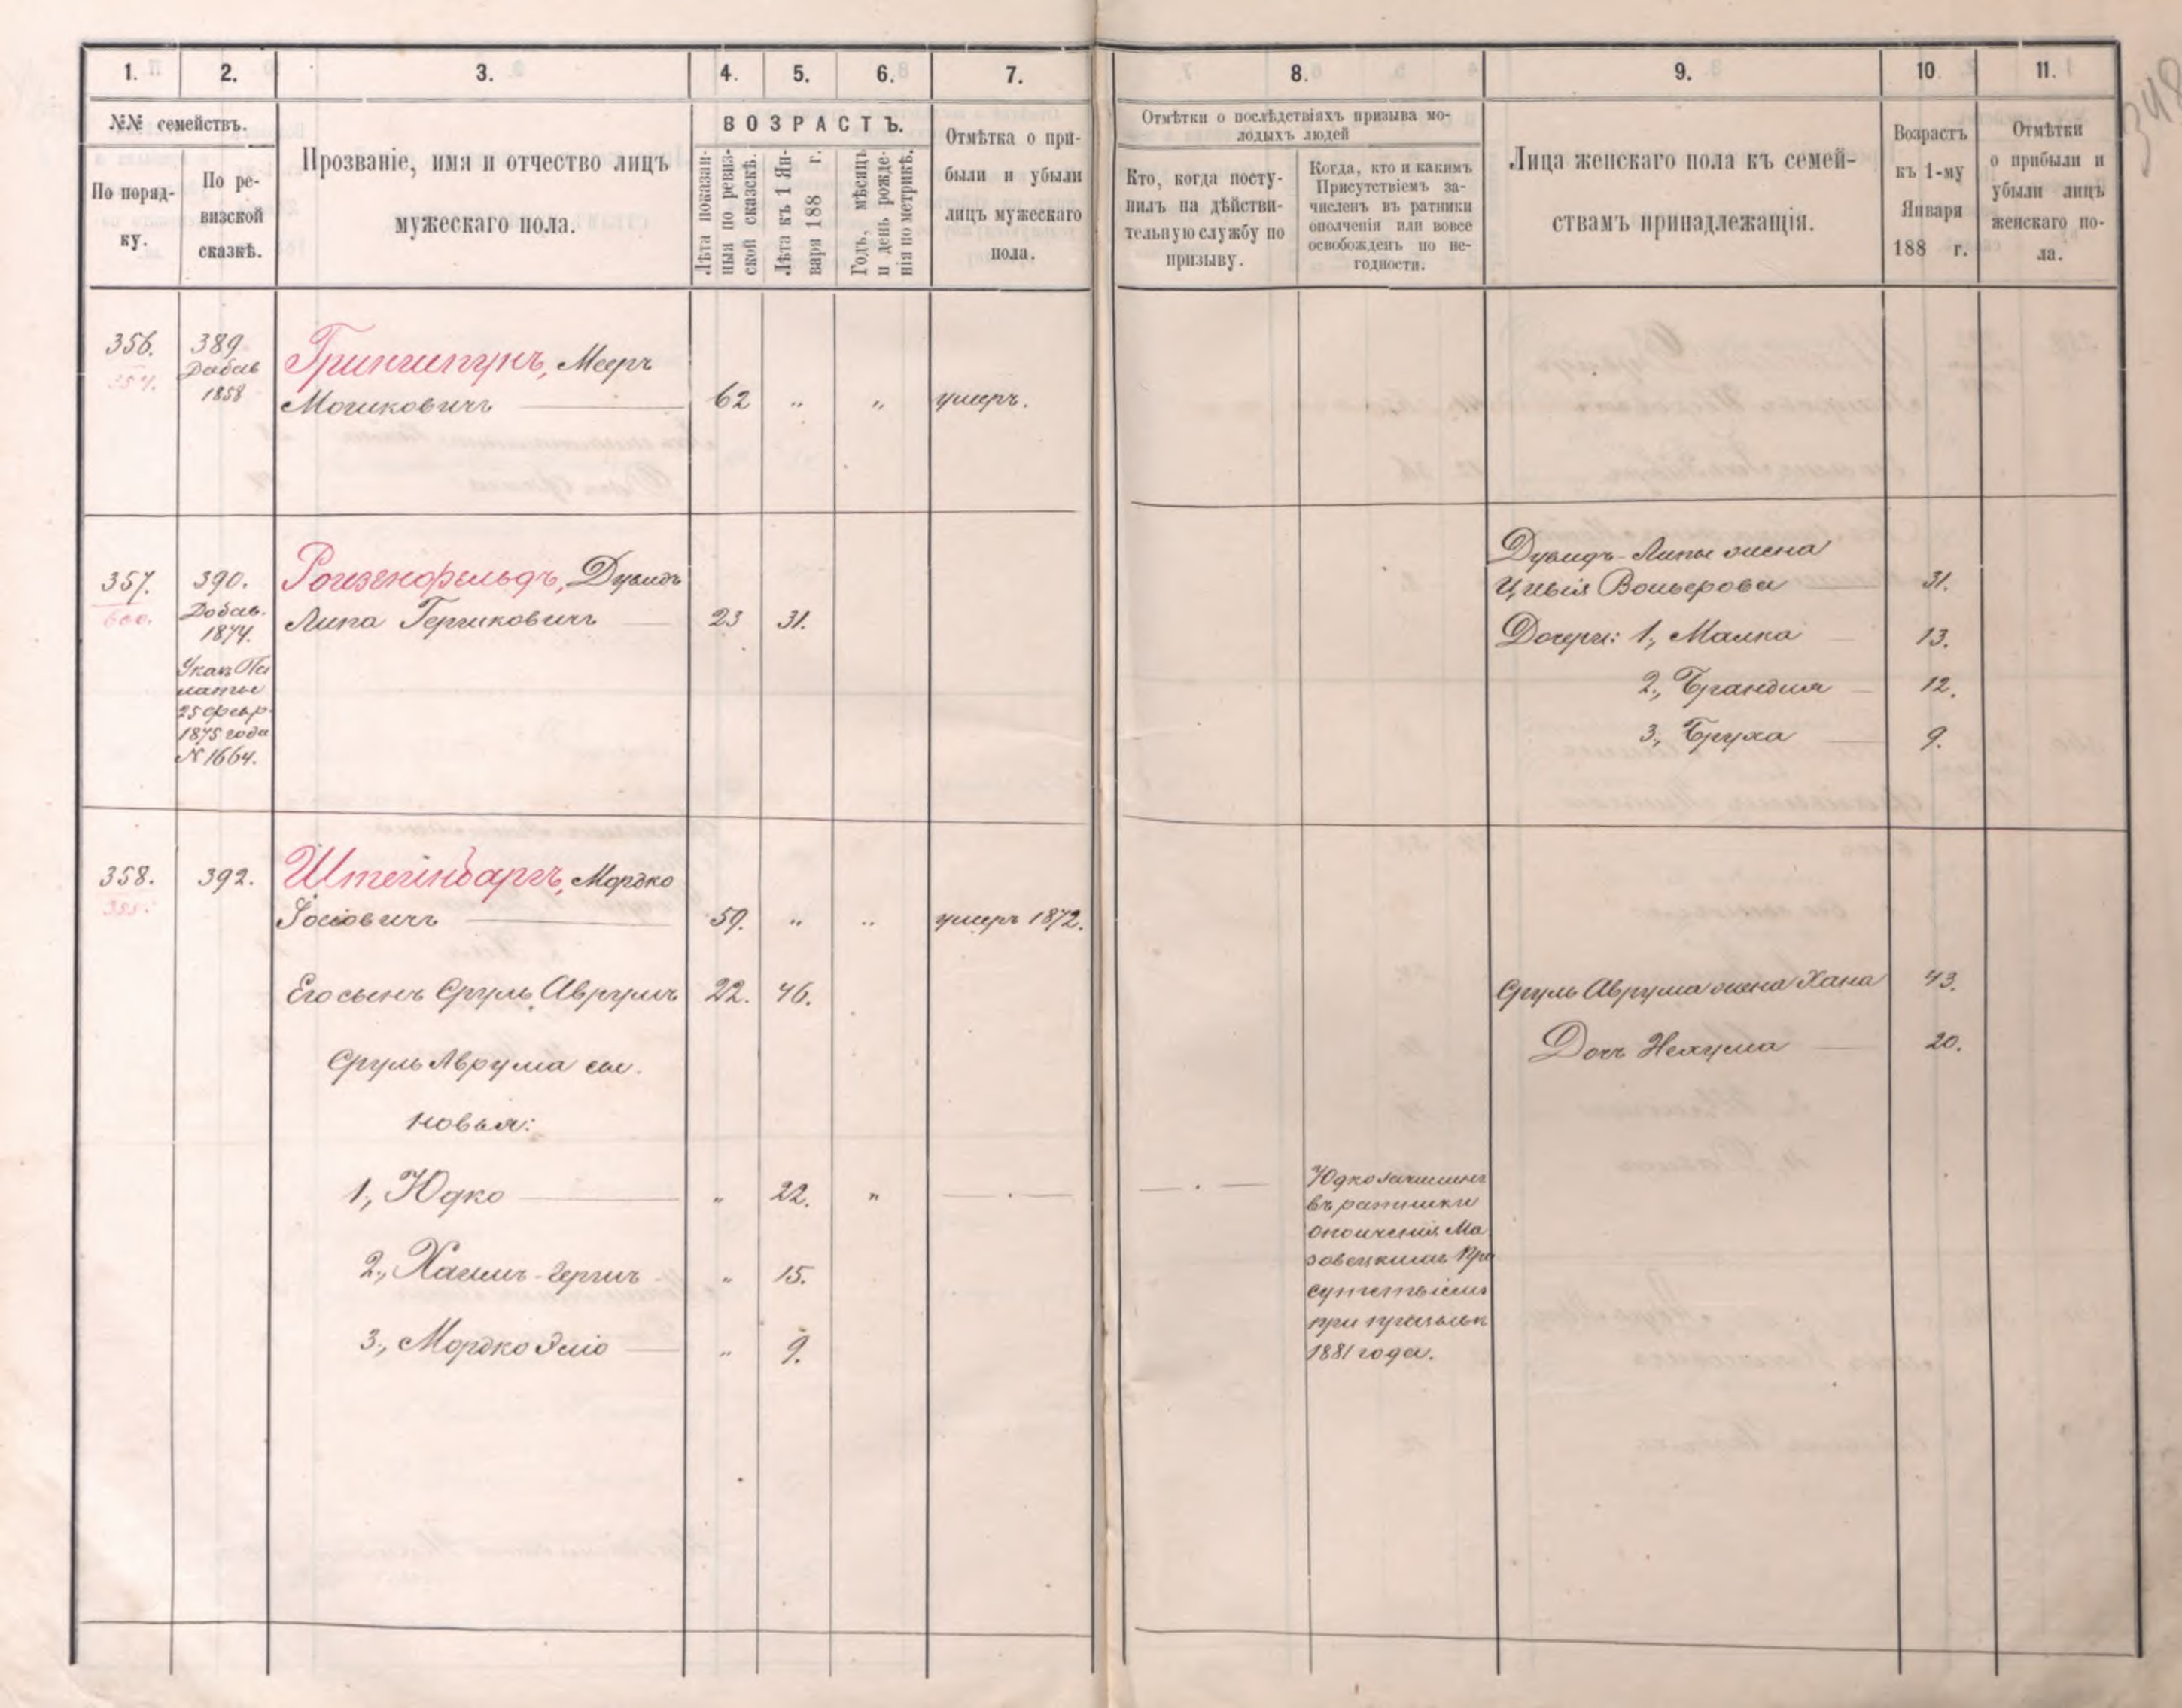 1. 2. 3. 4. 5. 6. 7. 8. 9. 10 11.
№№ семействъ.
По поряд-
ку.
По ре-
визской
сказкѣ.
Прозваніе, имя и отчество лицъ
мужескаго пола.
ВОЗРАСТЪ.
Лѣта показан-
ныя по ревиз-
ской сказскѣ.
Лѣта къ 1 Ян-
варя 188 г.
Годъ, мѣсяцъ
и день рожде-
нія по метрикѣ.
Отмѣтка о при-
были и убыли
лицъ мужескаго
пола.
Отмѣтки о послѣдствіяхъ призыва мо-
лодыхъ людей
Кто, когда посту-
пилъ на дѣйстви-
тельную службу по
призыву.
Когда, кто и какимъ
Присутствіемъ за-
численъ въ ратники
ополченія или вовсе
освобожденъ по не-
годности.
Лица женскаго пола къ семей-
ствамъ принадлежащія.
Возрастъ
къ 1-му
Января
188 г.
Отмѣтки
о прибыли и
убыли лицъ
женскаго по-
ла.
348
356.
389
Добав
1858
Гриншпунъ, Мееръ
Мошковичъ 62 " " умеръ.
357.
600.
390.
Добав.
1874.
Указ Па
латы
25 февр.
1875 года
N 1664.
Розенфельдъ, Дувидъ
Липа Гершковичъ 23 31.
Дувидъ-Липы жена
Цивія Вольерова 31.
Дочери: 1, Малка 13.
2, Брандля 12.
3, Бруха 9.
358.
392.
Штейнбаргъ, Мордко
Іосіовичъ 59. " " умеръ 1872.
Его сынъ Сруль Аврумъ 22. 46.
Сруль Аврума жена Хана 43.
Дочь Нехума 20.
Сруль Аврума сы-
новья:
1, Юдко " 22. "
2, Хаимъ-Гершъ " 15.
3, Мордко Эліо " 9.
Юдко зачисленъ
въ ратники
ополченія Ма
зовецкимъ При
сутствіемъ
при призывѣ
1881 года.